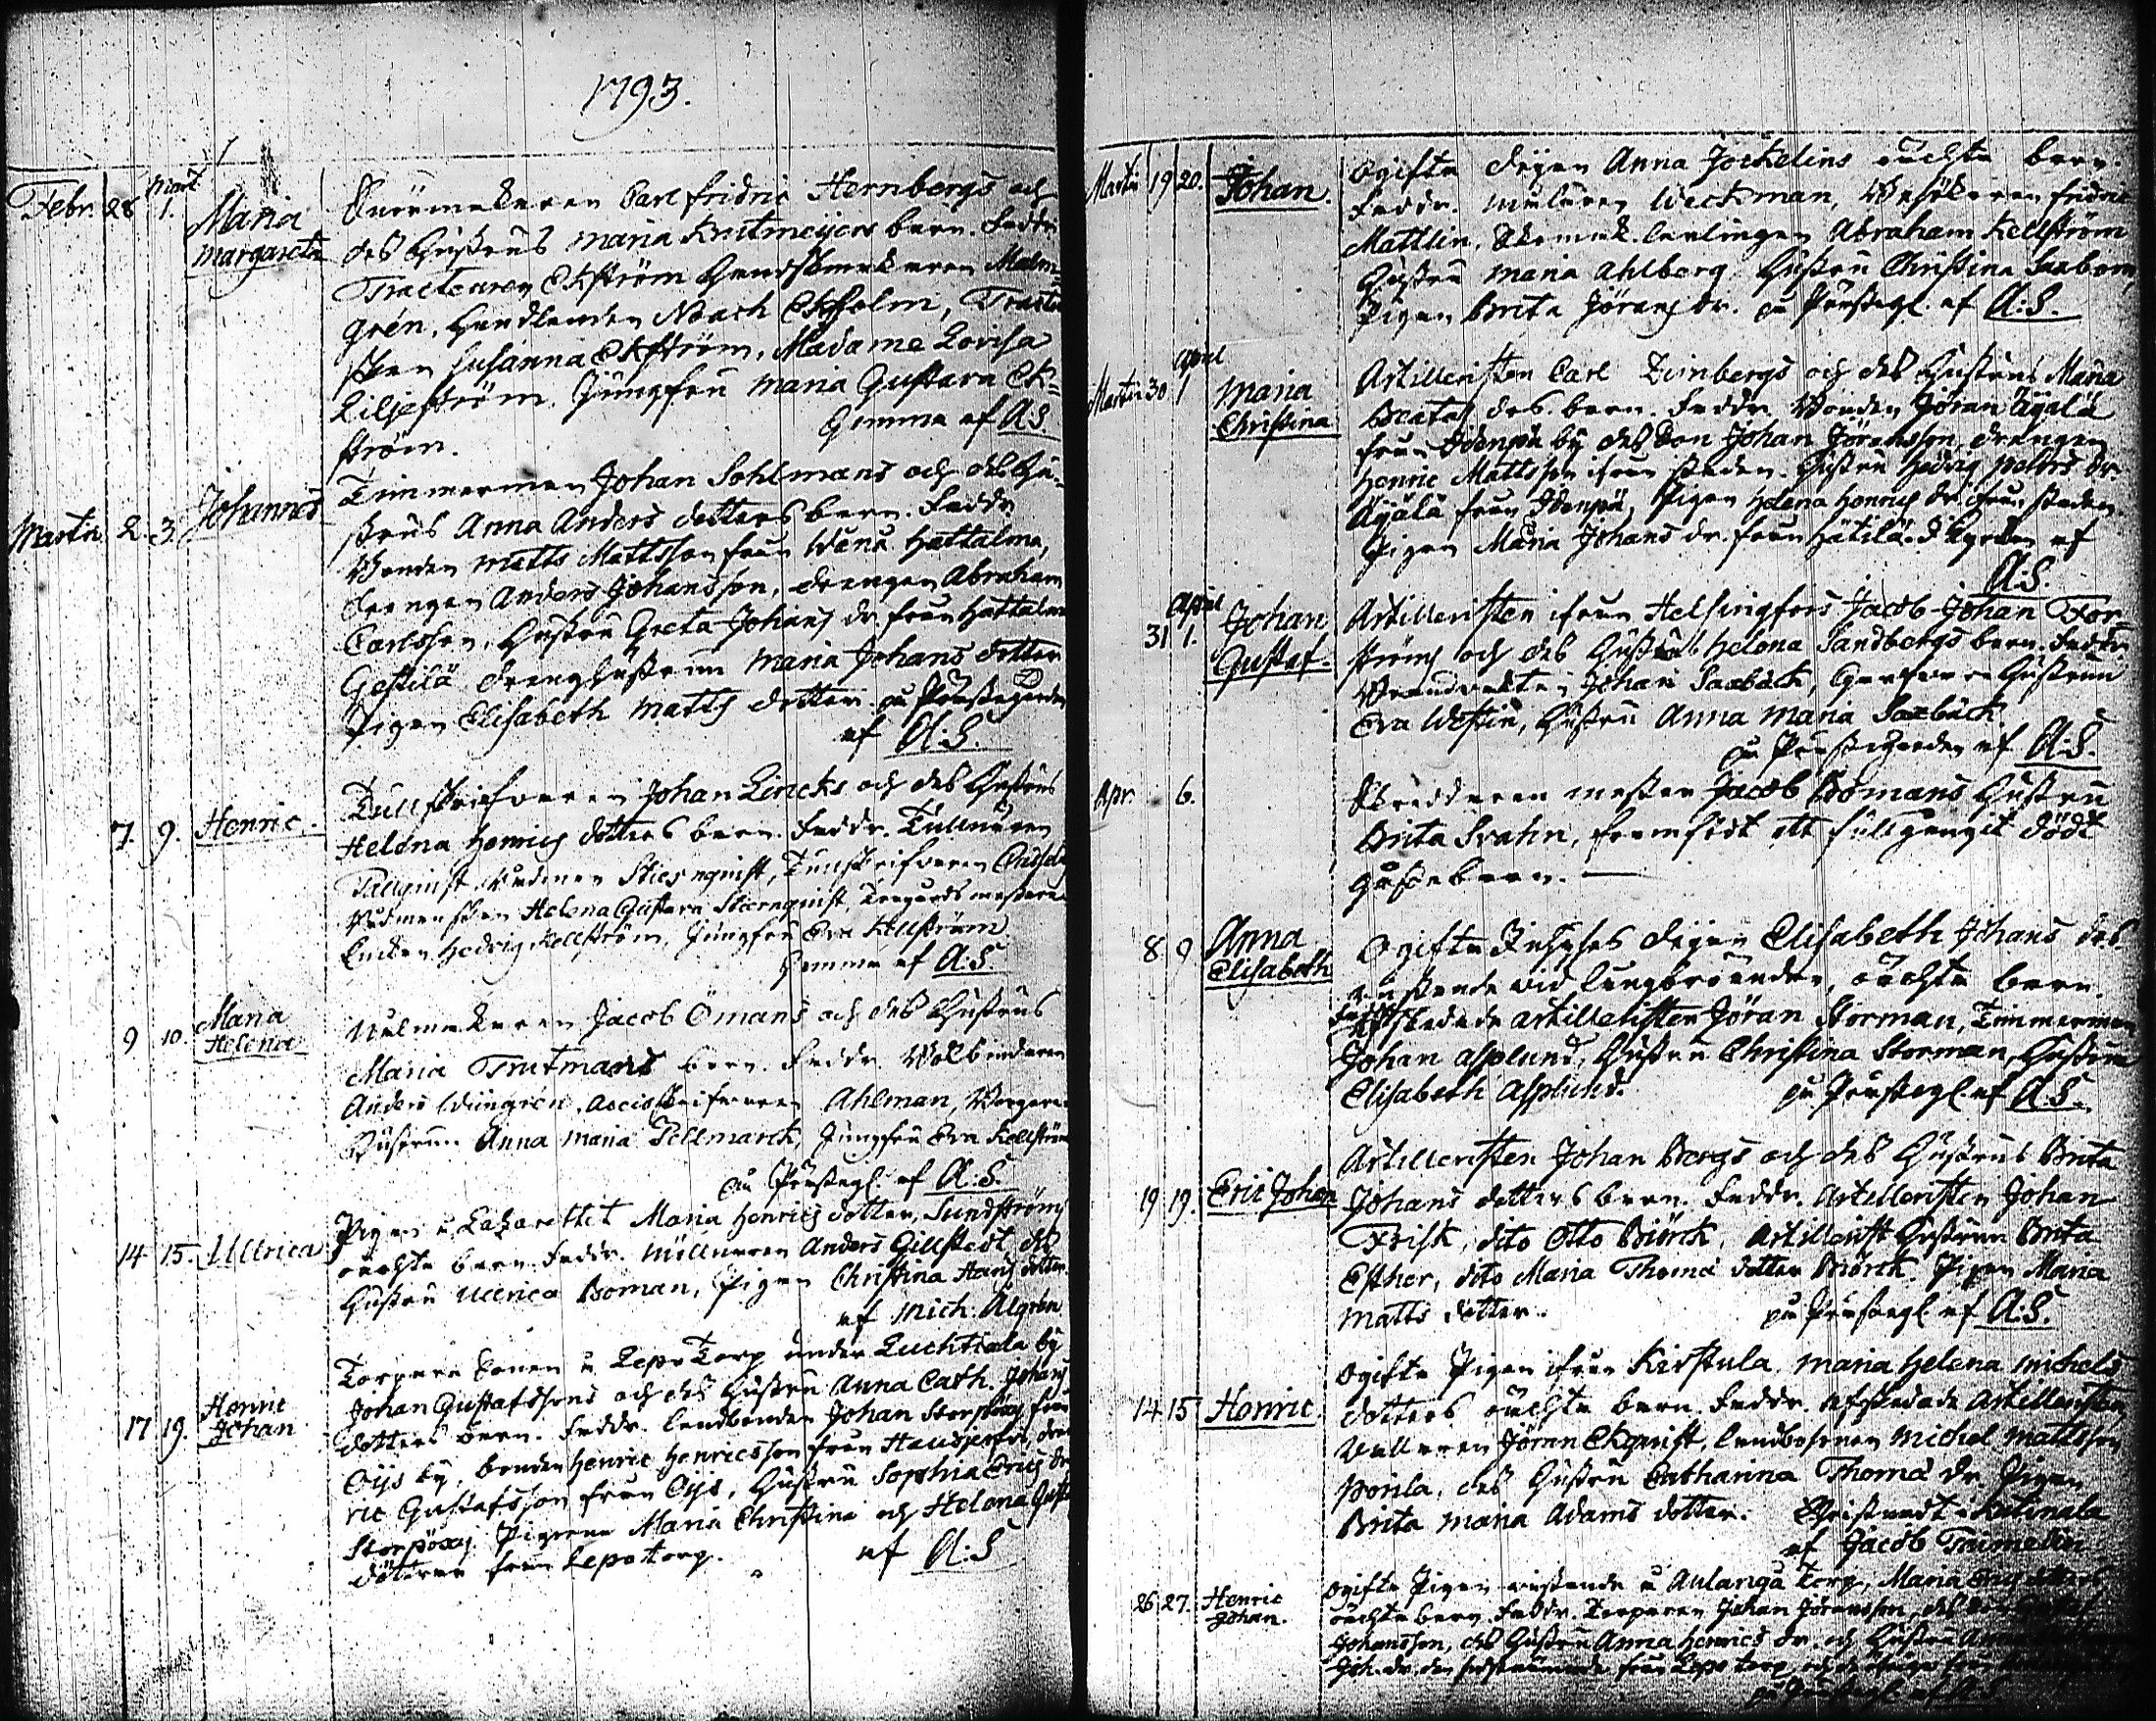 1793.
Febr. 28 Mart. 1. Maria Margareta
Snörmakaren Carl Fridric Hernbergs och
des Hustrus Maria Knutmeijers barn. Faddr.
Tracteuren Ekström Handskmakaren Malm-
grén, Handlanden Noach Ekholm,
Susanna Ekström, Madame Lovisa
Liljeström. Jungfru Maria Gustava Ek-
ström. Hemma af A:S
Martii 2. 3. Johannes
Timmerman Johan Sohlmans och des Hu-
strus Anna Anders dotters barn. Faddr.
Bonden Matts Mattsson från Wana Hattalma,
drengen Anders Johansson, drengen Abraham
Carlsson, Hustru Greta Johans dr från Hattalma
Gestilä drenghustrun Maria Johans dotter
Pigan Elisabeth Matts dotter på Prestegården
af A:S.
7. 9. Henric.
Tullskrifvaren Johan Lincks och des Hustrus
Helena Henrics dotters barn. Faddr.
Tallqvist, Stiernqvist, Tullskrifvaren
Helena Gustava Stiernqvist,
Enkan Hedvig Kellström, Jungfru Eva Kellström
Hemma af A:S.
9 10. Maria Helena
Jacob Ömans och des Hustrus
Maria Trutmans barn. Faddr. Bokbindaren
Anders Wiingrén, Accisskrifvaren Ahlman,
Hustrun Anna Maria Tellmarck, Jungfru Eva Kellström
på Prestegl. af A:S.
14 15. Ullrica
Pigan i Lazarettet Maria Henrics dotter, Sundströms
oächta barn. Faddr. Möllnaren Anders Gillstedt, des
Hustru Ulrica Boman, Pigan Christina Hans dotter
af Mich: Algrén
17 19. Henric Johan
Torparesonen i Lepo Torp under Luchtiala by
Johan Gustafssons och des Hustru Anna Cath. Johans
dotters barn. Faddr. landbonden Johan Storpöög från
Oijs by, bonden Henric Henricsson från
ric Gustafsson från Oijs, Hustru Sophia Erics dr
Storpöög Pigorna Maria Christina och Helena
döttrar från Lepo torp. af A:S
Martii 19 20. Johan.
Ogifta deijan Anna Jockelins oächta barn.
Faddr. Mületen Weckman, Besökaren Fridric
Mattlin, Abraham Kellström
Hustru Maria Ahlberg Hustru Christina Saxbom,
Pigan Brita Jörans dr. på Prestegl. af A:S.
Martii 30 April 1 Maria Christina
Artilleristen Carl Zimbergs och des Hustrus Maria
Beatas des barn. Faddr. Bonden Jöran Äijälä
från Idenpä by des Son Johan Jöransson, drengen
Henric Mattsson ifrån staden. Hustru Hedvig Peders dr.
Äijälä från Idenpä, Pigan Helena Henrics dr. ifrån staden.
Pigan Maria Johans dr. från Hätilä. i Kyrckan af
A:S.
31 April 1. Johan Gustaf.
Artilleristen ifrån Helsingfors Jacob Johan Tor-
ströms och des Hustrus Helena Sandbergs barn. Faddr.
Brandvakten Johan Saxbäck, Hustrun
Eva Westin, Hustru Anna Maria Saxbäck
på Prestegården af A:S.
Apr. 6.
Skreddaren mester Jacob Bomans Hustru
Brita Svahn, framfödt ett fullgångit dödt
gossebarn.
8 9 Anna Elisabeth
Ogifta Inhyses deijan Elisabeth Johans des
vistande vid lungbrunnen, oächta barn.
Faddr. Afskedade artilleristen Jöran Storman, Timmerman
Johan Asplund, Hustru Christina Storman, Hustrun
Elisabeth Asplund. på Prestegl. af A:S.
19 19. Eric Johan
Artilleristen Johan Bergs och des Hustrus Brita
Johans dotters barn. Faddr. Artilleristen Johan
Frisk, dito Otto Biörck, Artillerist Hustrun Brita
Esther, dito Maria Thomæ dotter Biörck. Pigan Maria
Matts dotter. på Prestegl. af A:S.
14 15 Henric.
Ogifta Pigan ifrån Kirstula Maria Helena Michels
dotters oächta barn. Faddr. afskedade Artilleristen
Jöran Ekqvist, landbosonen Michel Mattsson
Ponila, des Hustru Catharina Thomæ dr. Pigan
Brita Maria Adams dotter. Christnadt i Katinala
af Jacob Trimelin
26 27. Henric Johan.
Ogifta Pigan vistande i Aulanga Torp, Maria Erics dotters
oächta barn. Faddr. Torparen Johan Jöransson, des
Johansson, des Hustru Anna Henrics dr. och Hustru
Joh. dr. den sistnämnde från Lepo torp